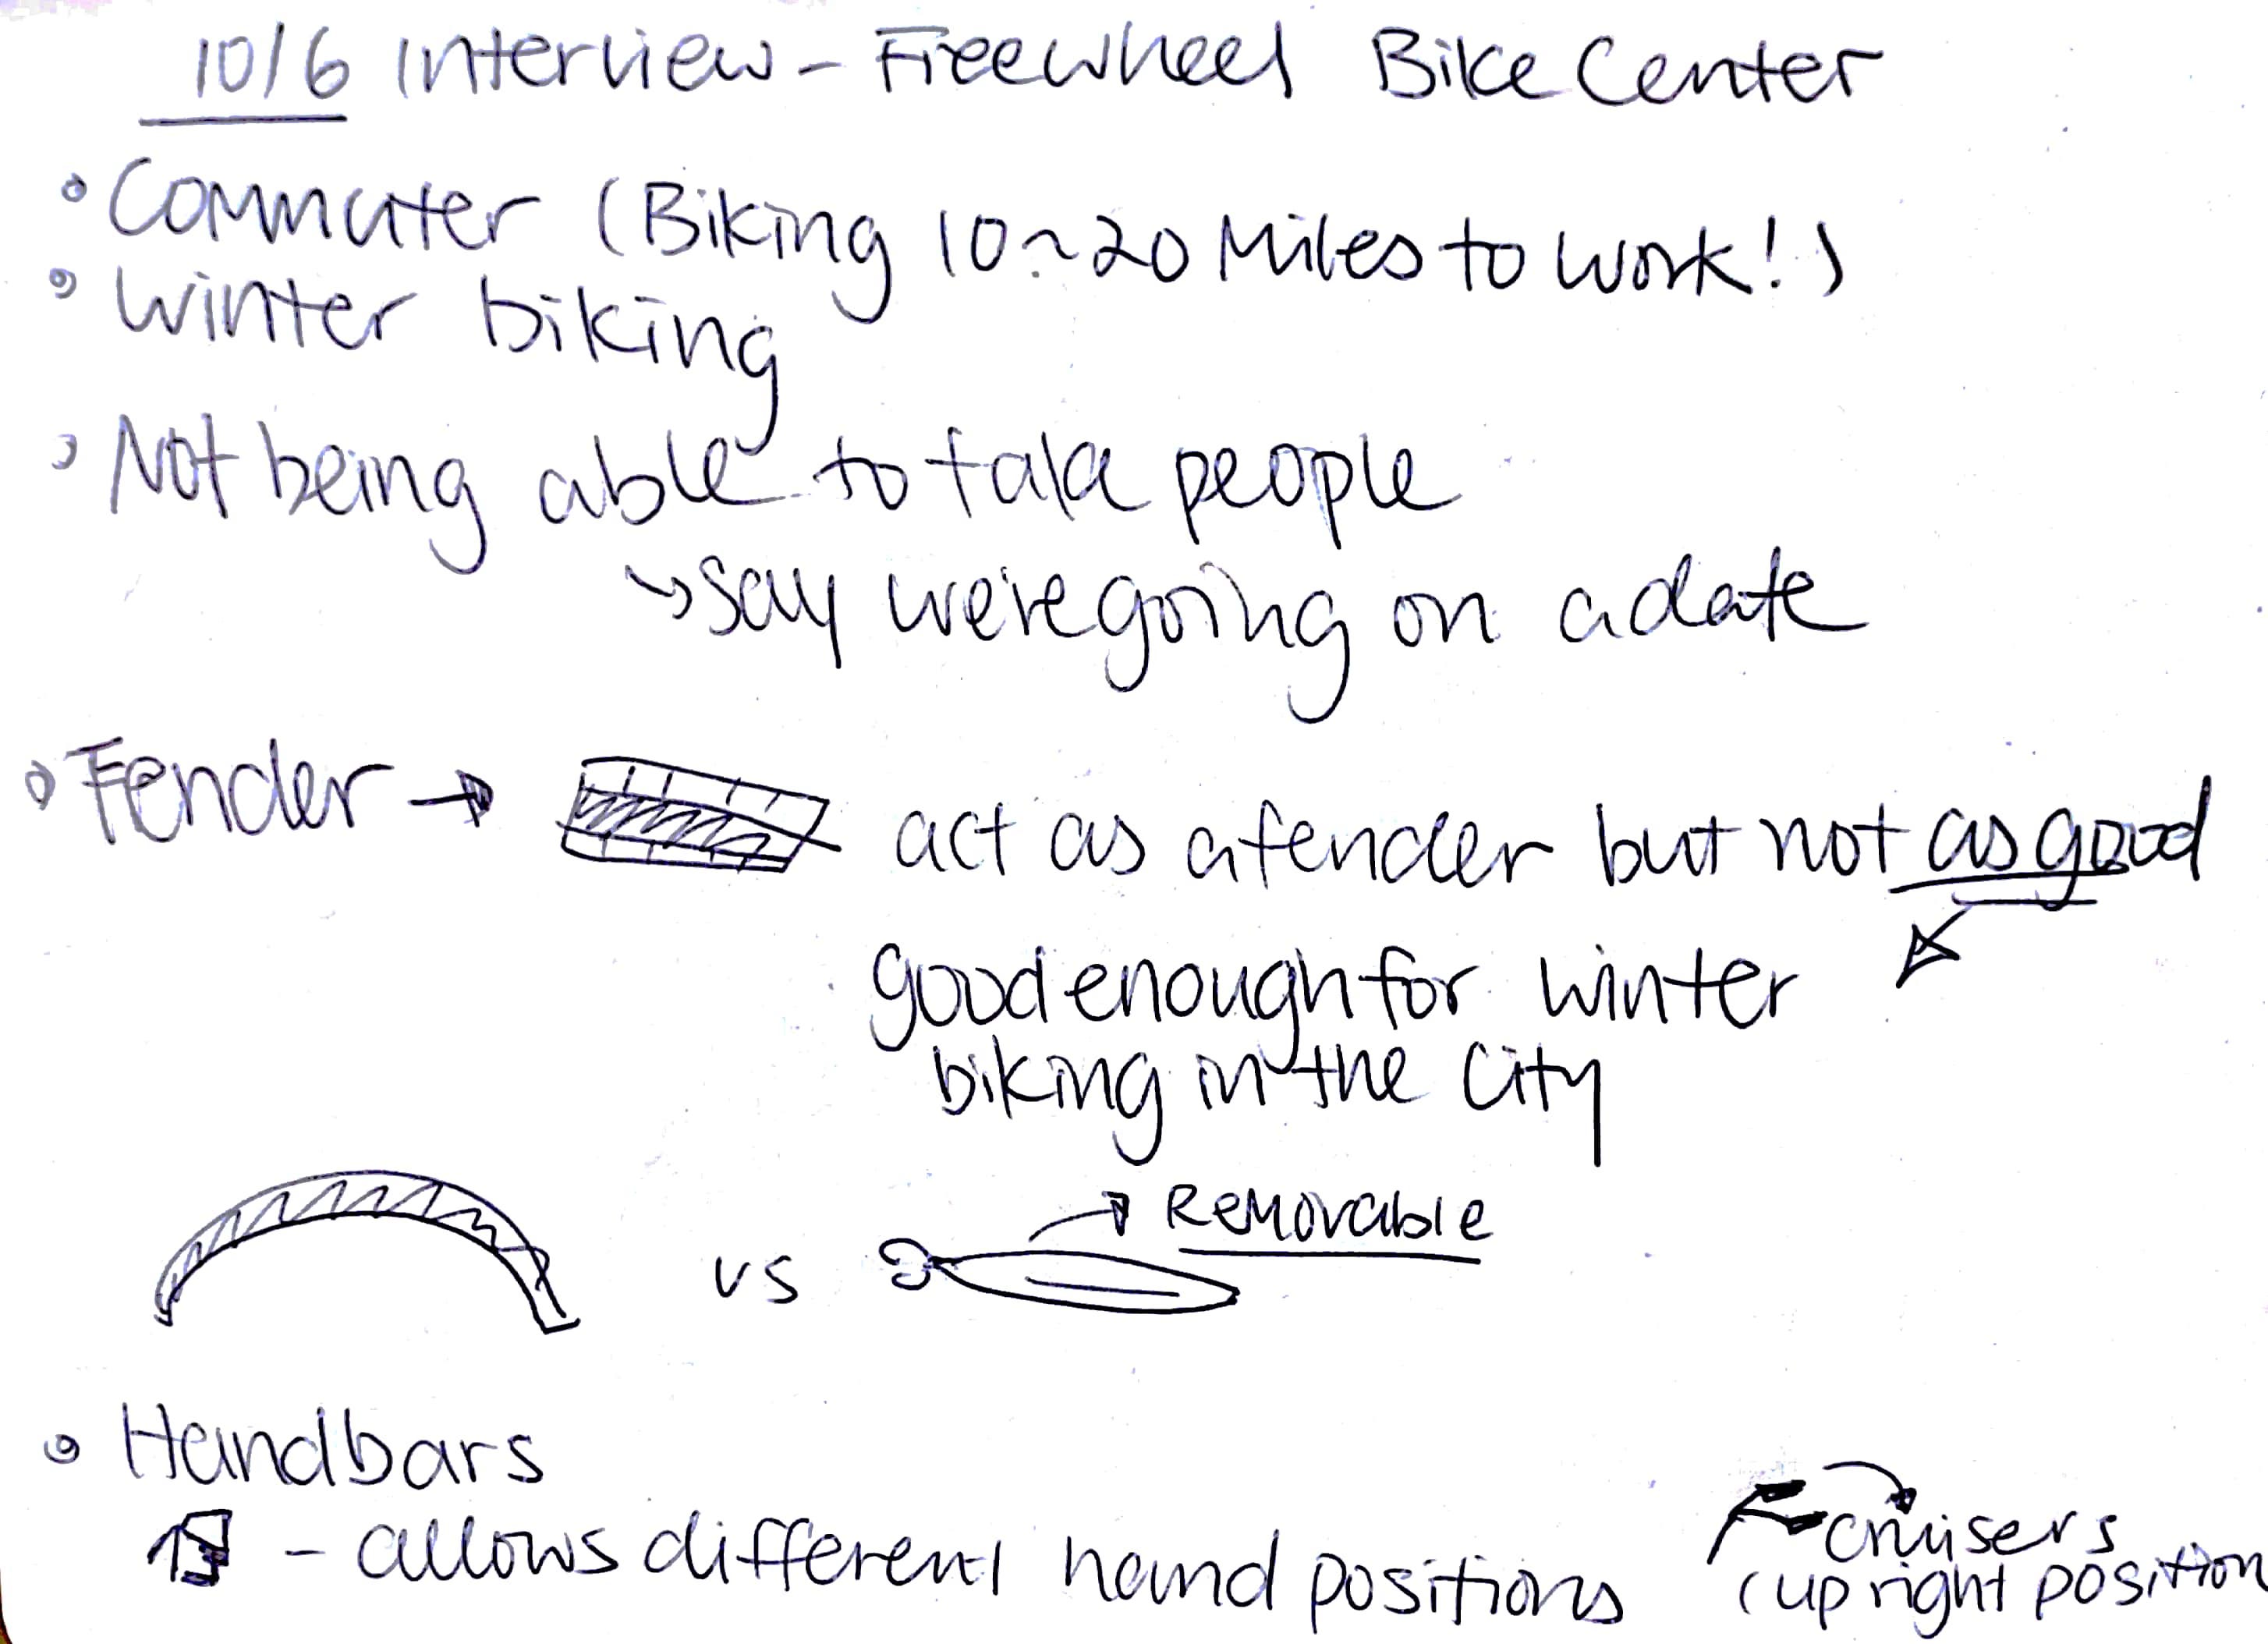 10/6 Interview - Freewheel Bike Center
• Commuter (Biking 10~20 Miles to work!)
• Winter biking
• Not being able to take people
↳ say we're going on a date
• Fender → act as a fender but not as good
good enough for winter
biking in the city
vs → Removable
• Handbars
- allows different hand positions
cruisers
(upright position